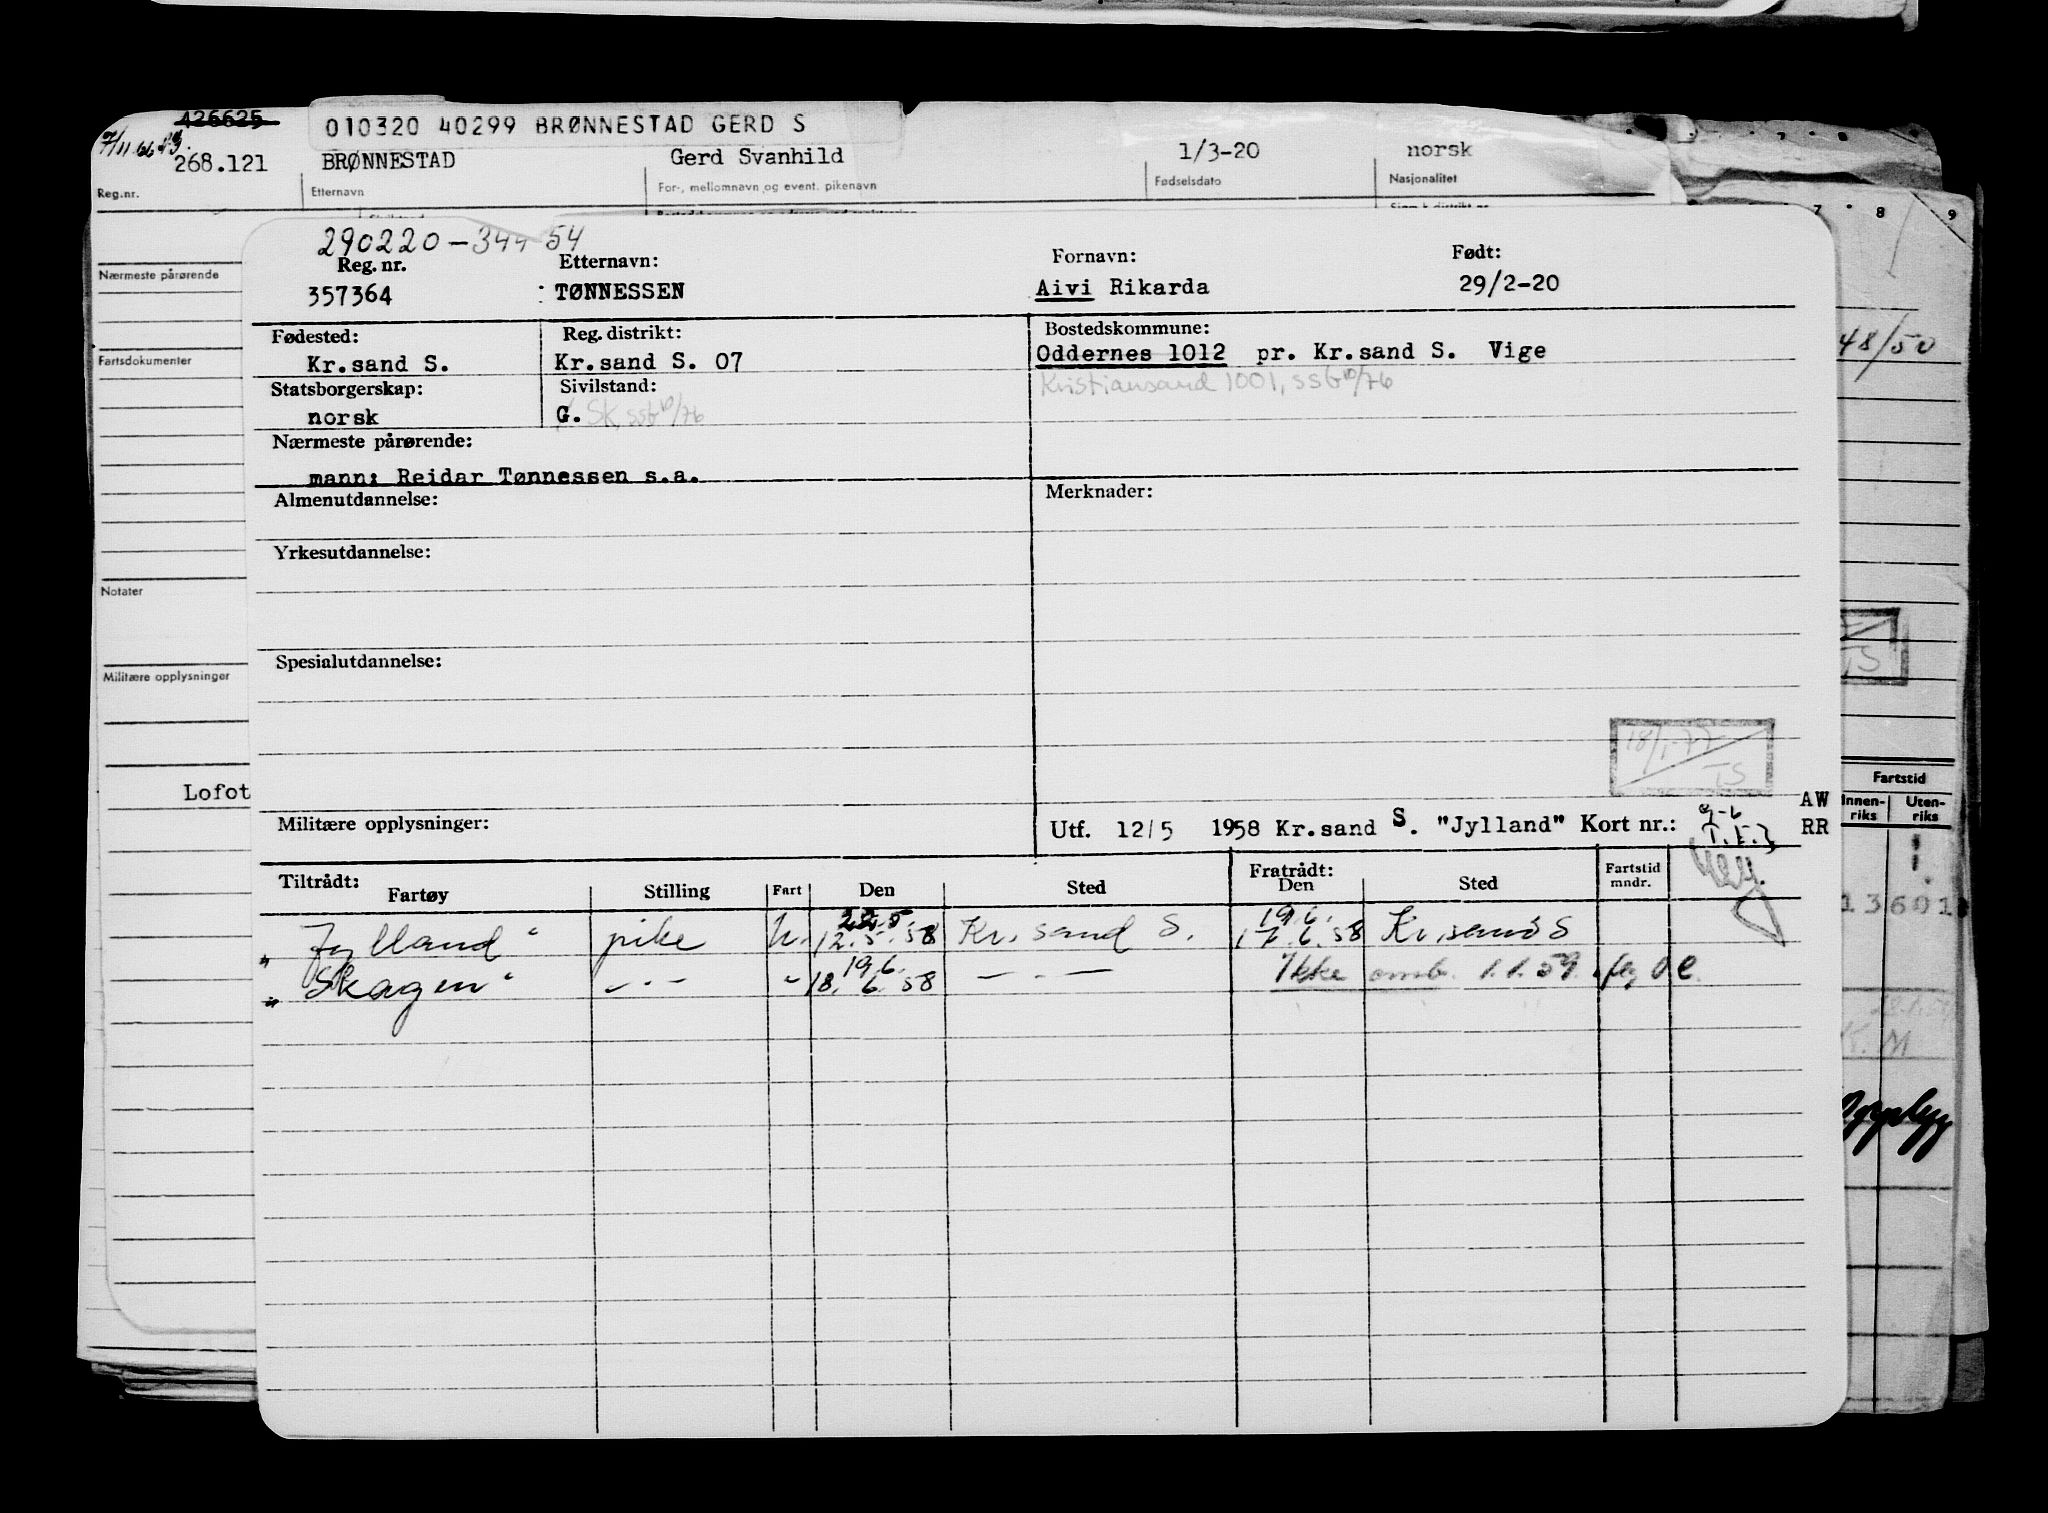 426625
010320 40299 BRØNNESTAD GERD S
7/11.66
268.121 BRØNNESTAD Gerd Svanhild 1/3-20 norsk
Reg.nr. Etternavn For-, mellomnavn og event. pikenavn Fødselsdato Nasjonalitet
7 8 9
290220-344 54
Reg. nr. Etternavn: Fornavn: Født:
357364 TØNNESSEN Aivi Rikarda 29/2-20
Nærmeste pårørende
Fødested: Reg. distrikt: Bostedskommune:
Kr.sand S. Kr.sand S. 07 Oddernes 1012 pr. Kr.sand S. Vige
48/50
Fartsdokumenter
Statsborgerskap: Sivilstand: Kristiansand 1001, SSB 10/76
norsk G. Sk, SSB 10/76
Nærmeste pårørende:
mann: Reidar Tønnessen s.a.
Almenutdannelse: Merknader:
Yrkesutdannelse:
Notater
Spesialutdannelse:
Militære opplysninger
TS
18/1-77
TS
Lofot
Fartstid
Innen-riks Uten-riks
Militære opplysninger: Utf. 12/5 1958 Kr.sand S. "Jylland" Kort nr.: AW
RR
Tiltrådt: Fratrådt:
Fartøy Stilling Fart Den Sted Den Sted Fartstid mndr.
13601
22.5. 19.6.
"Jylland" pike h. 12.5.58 Kr.sand S. 17.6.58 Kr.sand S
19.6.
"Skagen" -"- " 18.6.58 -"- Ikke omb. 1.1.59.
K. M